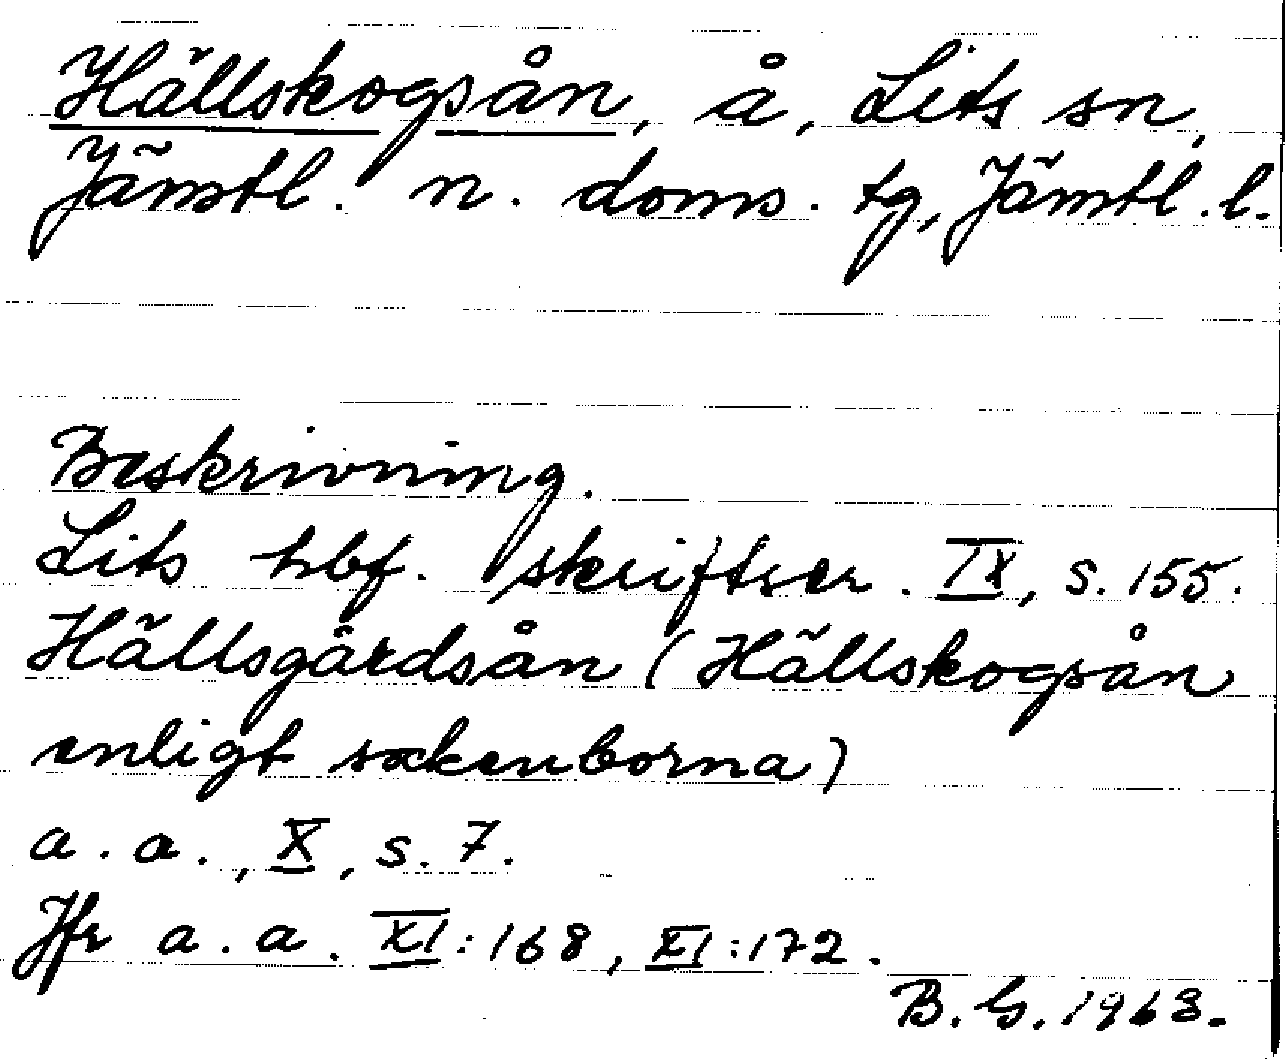 Hällskogsån, å, Lits sn,
Jämtl. n. doms. tg, Jämtl. l.
Beskrivning.
Lits hbf. skriftser. IX, s. 155.
Hällsgårdsån (Hällskogsån
enligt sockenborna)
a. a., X, s. 7.
Jfr a. a. XI:168, XI:172.
B. G. 1963.